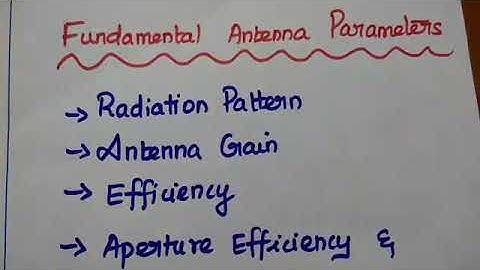 Fundamental Antenna Parameters
→ Radiation Pattern
→ Antenna Gain
→ Efficiency
→ Aperture Efficiency &